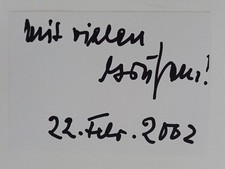 mit vielen
Grüßen!
22. Febr. 2002